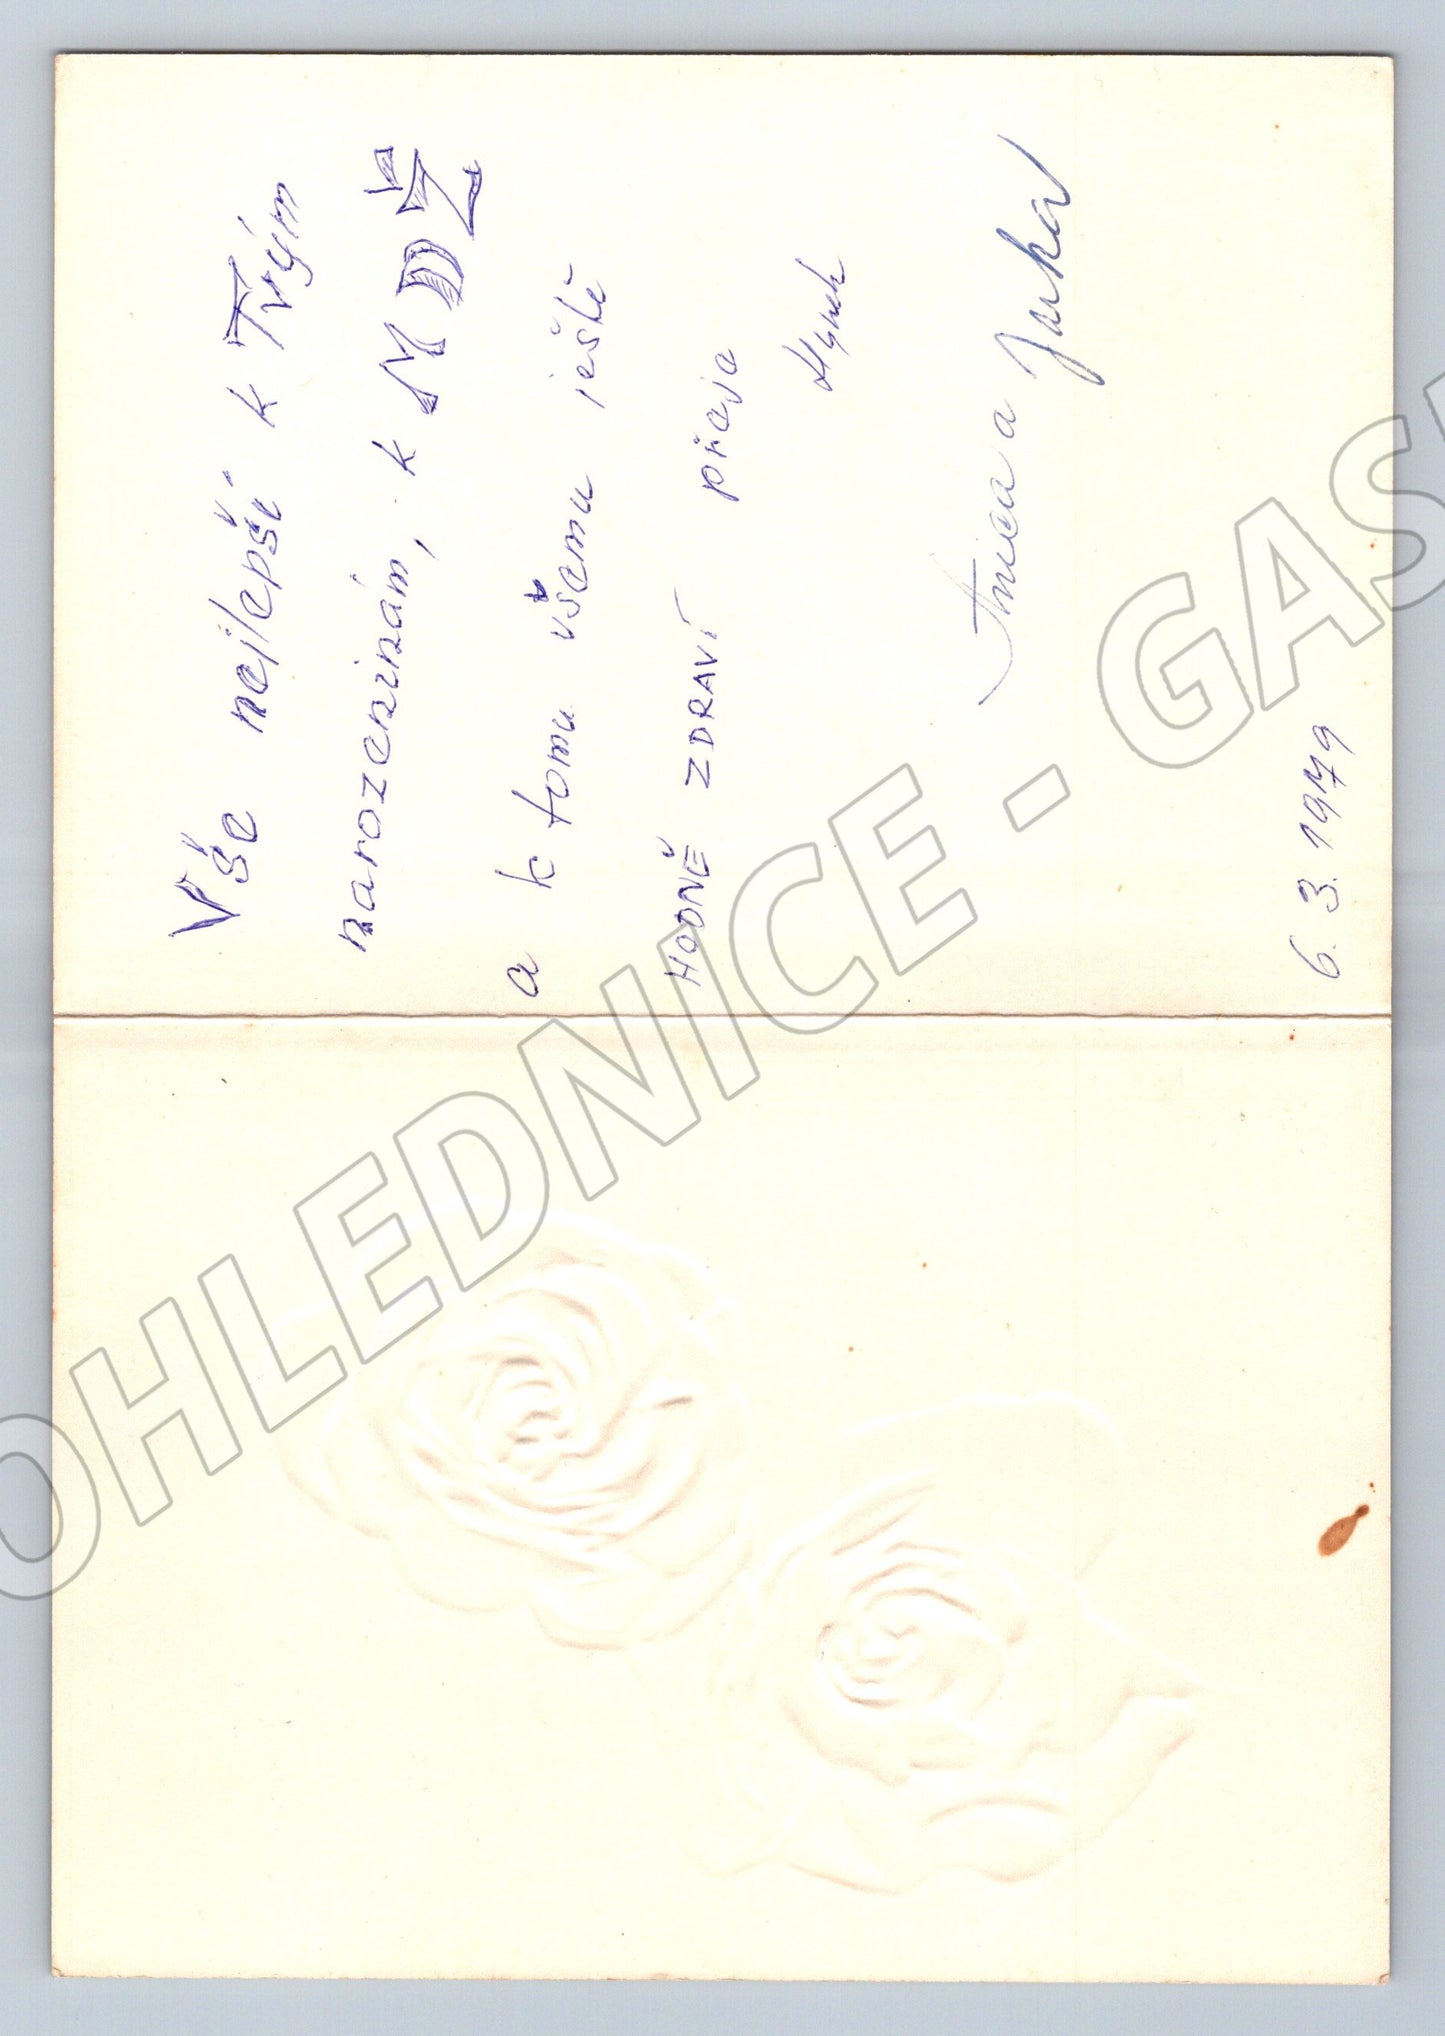 Vše nejlepší k Tvým
narozeninám, k MDŽ
a k tomu všemu ještě
HODNĚ ZDRAVÍ přeje
Hynek
a Jarka
6. 3. 1979
OHLEDNICE - GAS